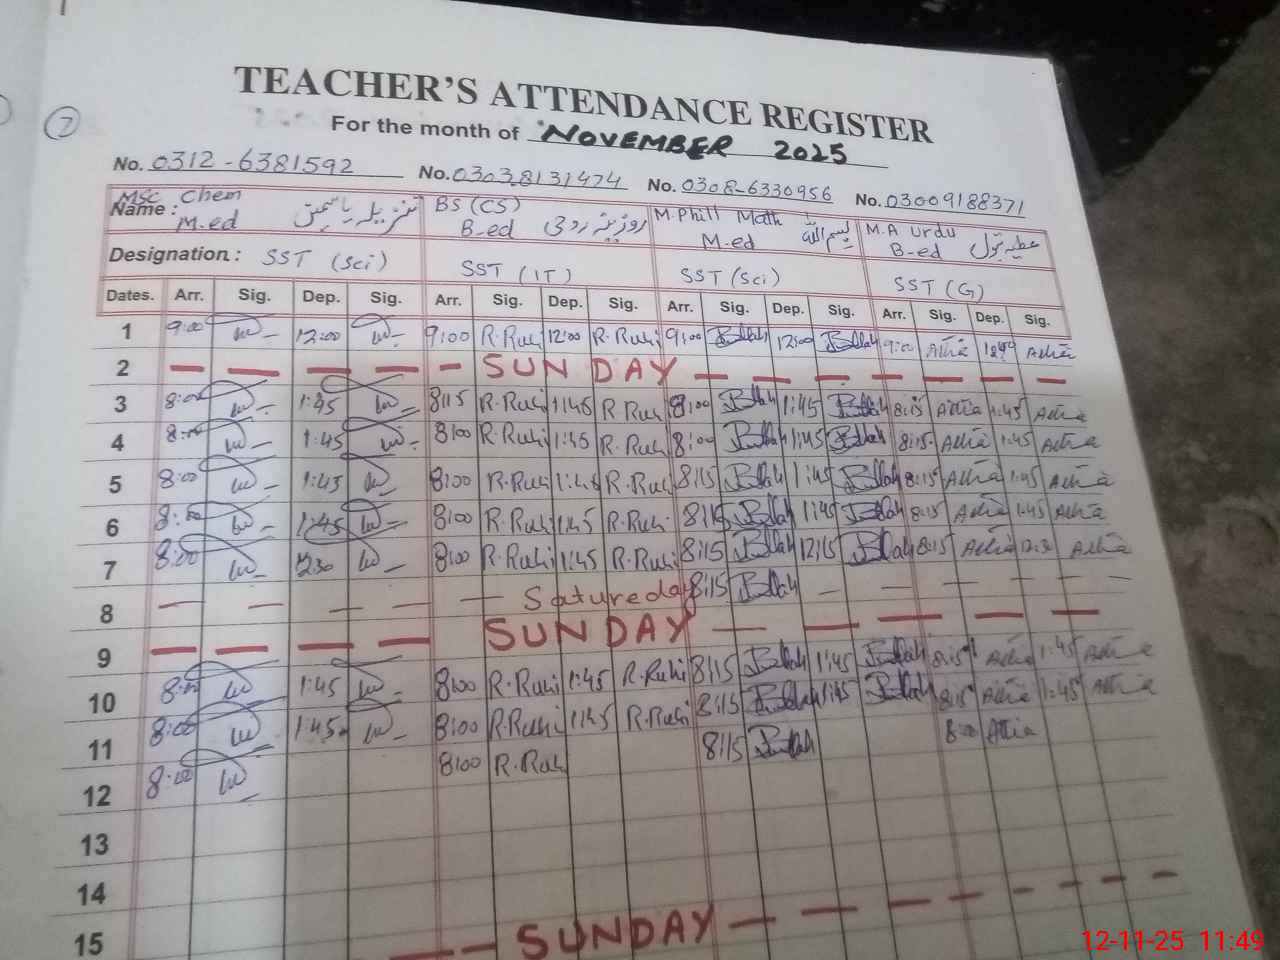 7
TEACHER'S ATTENDANCE REGISTER
For the month of NOVEMBER 2025
No. 0312-6381592 No. 03038131474 No. 0308-6330956 No. 03009188371
Name: MSC Chem M.ed تنزیلہ یاسمین BS (CS) B-ed روزینہ روحی M.Phill Math M.ed بسم اللہ M.A Urdu B-ed عطیہ بتول
Designation: SST (Sci) SST (IT) SST (Sci) SST (G)
Dates. Arr. Sig. Dep. Sig. Arr. Sig. Dep. Sig. Arr. Sig. Dep. Sig. Arr. Sig. Dep. Sig.
1 9:00 12:00 9:00 R.Ruhi 12:00 R.Ruhi 9:00 12:00 9:00 Attia Attia
2 SUNDAY
3 8:00 1:45 8:15 R.Ruhi 1:45 R.Ruhi 8:00 1:45 8:15 Attia 1:45 Attia
4 8:00 1:45 8:00 R.Ruhi 1:45 R.Ruhi 8:00 1:45 8:15 Attia 1:45 Attia
5 8:00 1:45 8:00 R.Ruhi 1:45 R.Ruhi 8:15 1:45 8:15 Attia 1:45 Attia
6 8:00 1:45 8:00 R.Ruhi 1:45 R.Ruhi 8:15 1:45 8:15 Attia 1:45 Attia
7 8:00 12:30 8:00 R.Ruhi 1:45 R.Ruhi 8:15 12:15 8:15 Attia 12:30 Attia
8 Satureday 8:15
9 SUNDAY
10 8:00 1:45 8:00 R.Ruhi 1:45 R.Ruhi 8:15 1:45 8:15 Attia 1:45 Attia
11 8:00 1:45 8:00 R.Ruhi 1:45 R.Ruhi 8:15 1:45 8:15 Attia 1:45 Attia
12 8:00 8:00 R.Ruhi 8:15 8:00 Attia
13
14
15 SUNDAY
12-11-25 11:49